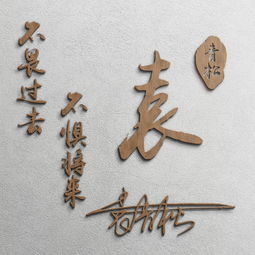 不畏过去
不惧将来
袁
青松
袁青松